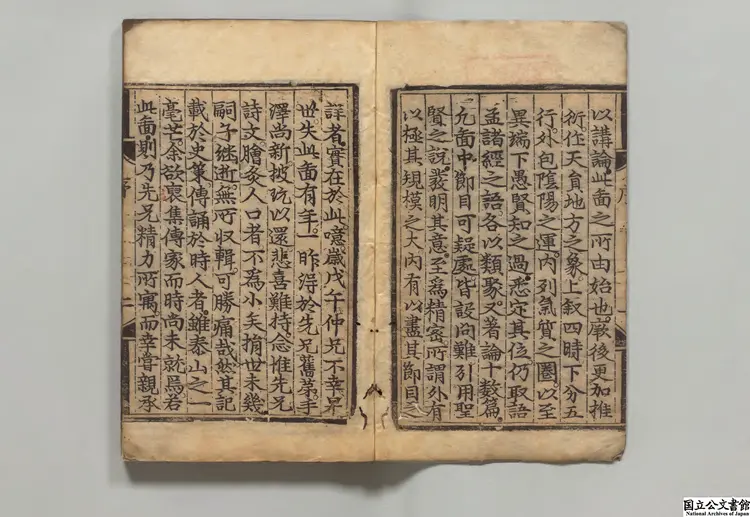 序
以講論此啚之所由始也厥後更加推
衍作天負地方之象上叙四時下分五
行外包陰陽之運内列氣質之圈以至
異端下愚賢知之過悉定其位仍取語
孟諸經之語各以類聚又著論十數篇
凡啚中節目可疑處皆設问難引用聖
賢之說發明其意至爲精密所謂外有
以極其規模之大内有以盡其節目之
詳者實在於此噫歲戊午仲兄不幸早
世失此啚有年一昨得於先兄舊苐手
澤尚新披玩以還悲喜難持念惟先兄
詩文膾炙人口者不爲小矣捐世未幾
嗣子继逝無所収輯可勝痛哉然其記
載於史策傳誦於時人者雖泰山之一
毫芒余欲裒集傳家而時尚未就焉若
此啚則乃先兄精力所寓而幸嘗親承
序
二
国立公文書館
National Archives of Japan